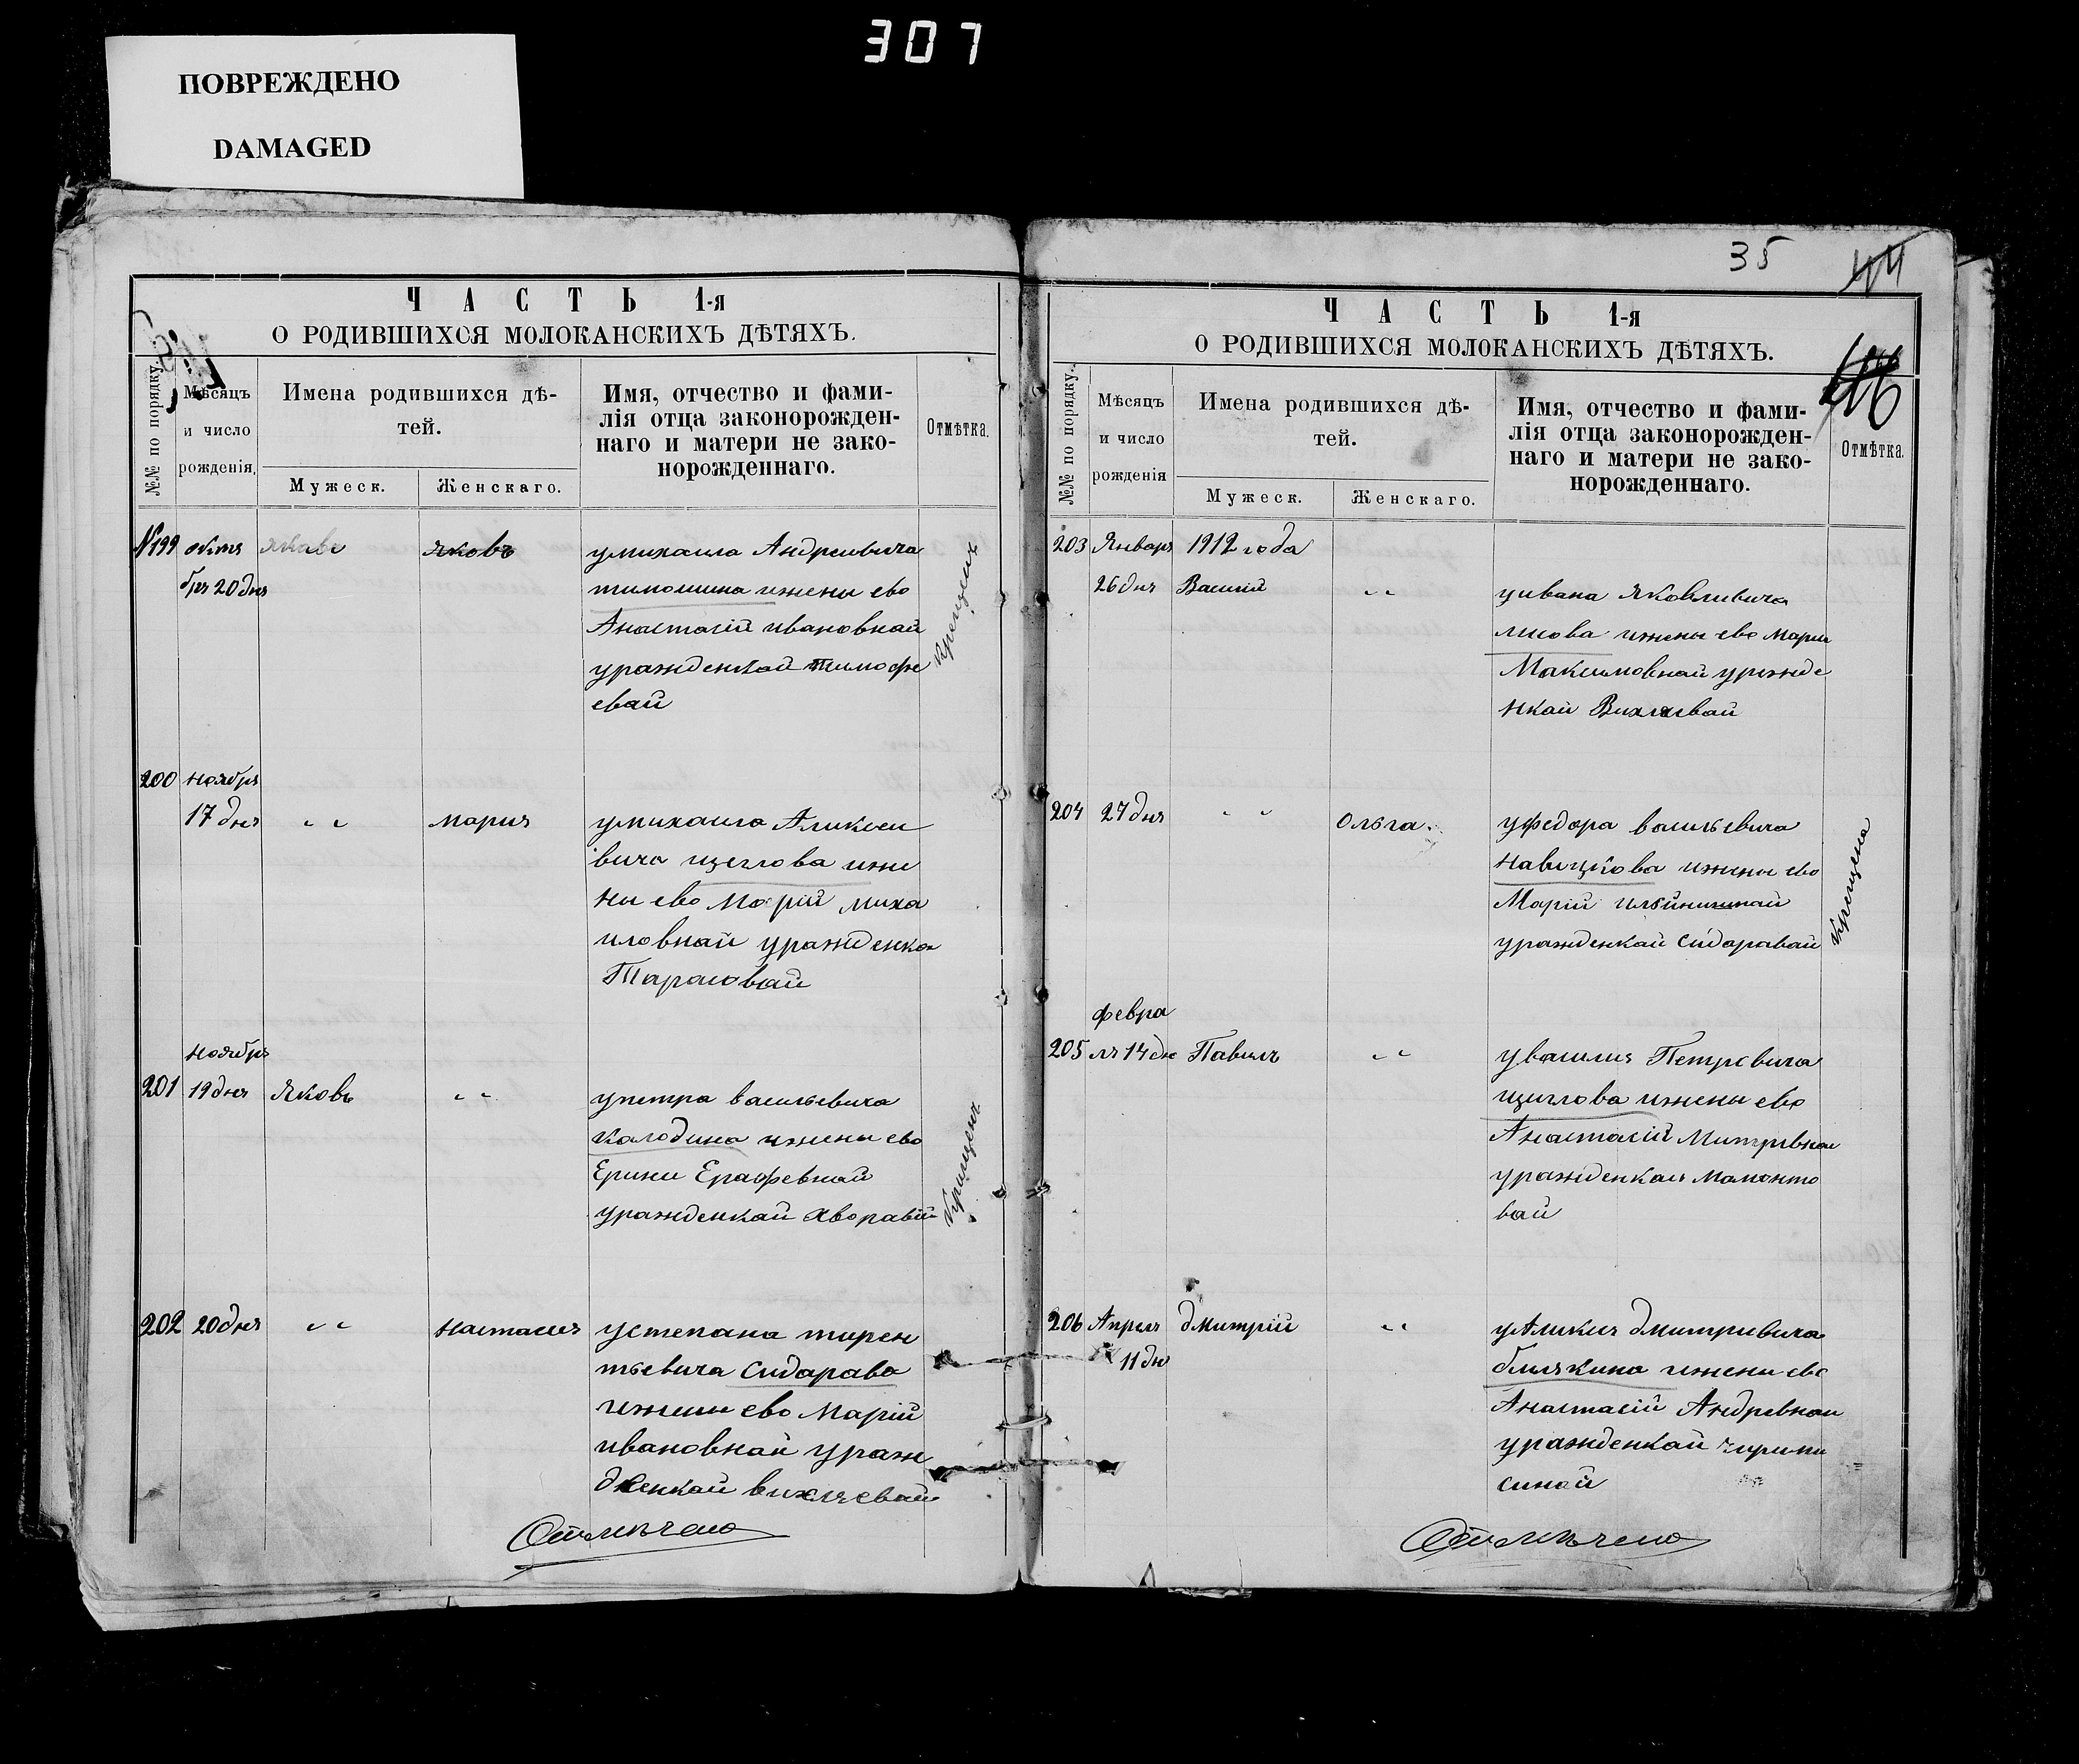 307
ПОВРЕЖДЕНО
DAMAGED
ЧАСТЬ 1-я
О РОДИВШИХСЯ МОЛОКАНСКИХЪ ДѢТЯХЪ.
№№ по порядку.
Мѣсяцъ
и число
рожденія.
Имена родившихся дѣ-
тей.
Мужеск.
Женскаго.
Имя, отчество и фами-
лія отца законорожден-
наго и матери не зако-
норожденнаго.
Отмѣтка.
№199 октя Якавъ Яковъ умихаила Андреивича
бря 20 дня тимошина ижены ево
Анастасій ивановнай
уражденкай тимофе
евай
Крещенъ
200 ноября
17 дня " " мария умихаила Аликсеи
вича щеглова ижи
ны ево Марій миха
иловнай уражденка
Тарасовай
ноября
201 19 дня Яковъ " " упетра васильевича
калодина ижены ево
Ерини Ерафевнай
уражденкай Хворавай
Крищенъ
202 20 дня " " Настасия устепана тирен
тьевича Сидарава
ижены ево Марій
ивановнай ураж
денкай вихляевай
Отмѣчено
35
44
ЧАСТЬ 1-я
О РОДИВШИХСЯ МОЛОКАНСКИХЪ ДѢТЯХЪ.
№№ по порядку.
Мѣсяцъ
и число
рожденія
Имена родившихся дѣ-
тей.
Мужеск.
Женскаго.
Имя, отчество и фами-
лія отца законорожден-
наго и матери не зако-
норожденнаго.
Отмѣтка.
203 Января 1912 года
26 дня Василій " " уивана Яковливича
лисова ижены ево Марии
Максимовнай уражде
нкай Вихляевай
204 27 дня " " Ольга. уфедора васильевича
Навичкова ижены ево
Марій Ильинишнай
уражденкай Сидаравай
Крещена
февра
205 ля 14 дн Павилъ " " увасилия Петревича
щиглова ижены ево
Анастасій Митревнаи
уражденкаи Мамонто
вай
206 Апреля дмитрій " " уАликсия дмитривича
билякина ижены ево
11 дн Анастасій Андревнаи
уражденкай чирипи
синай
Отмѣчено